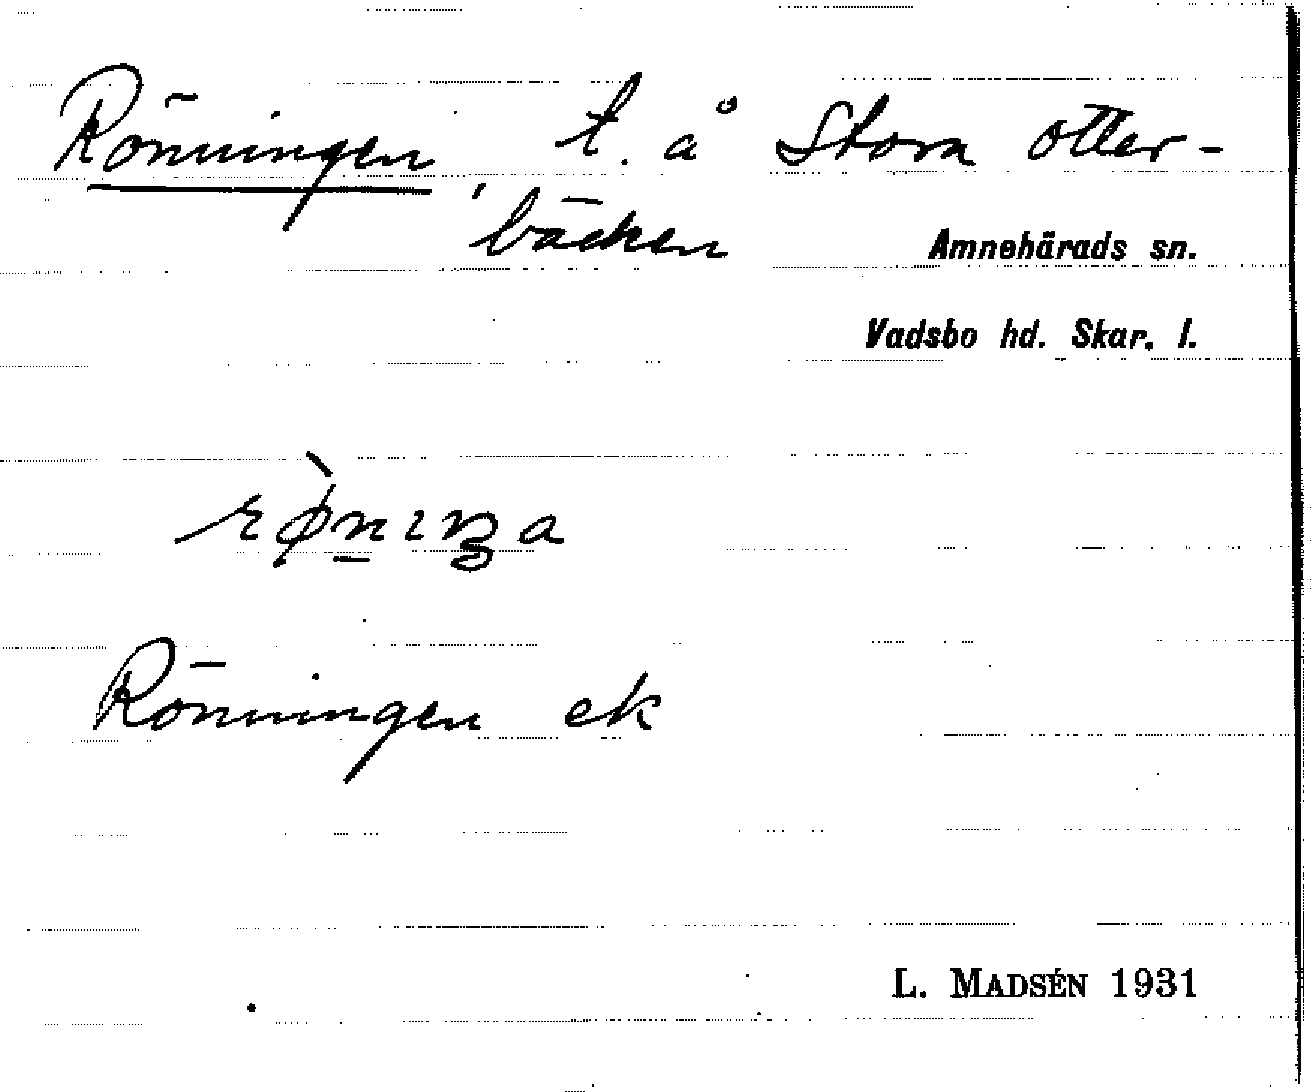 Rönningen, t. å Stora Otter-
bäcken
Amnehärads sn.
Vadsbo hd. Skar. l.
rø̀nıŋa
Rönningen ek
L. MADSÉN 1931